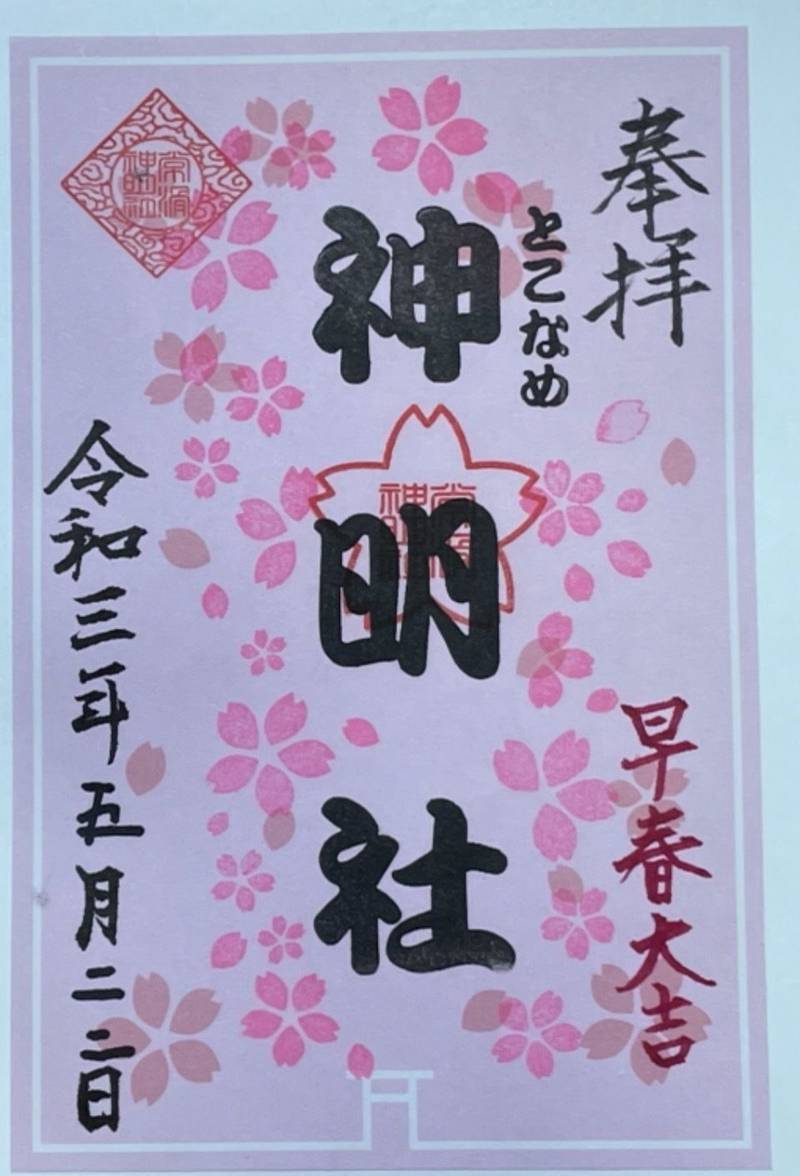 奉拝
早春大吉
とこなめ
神明社
常滑
神明社
令和三年五月二二日
常滑
神明社